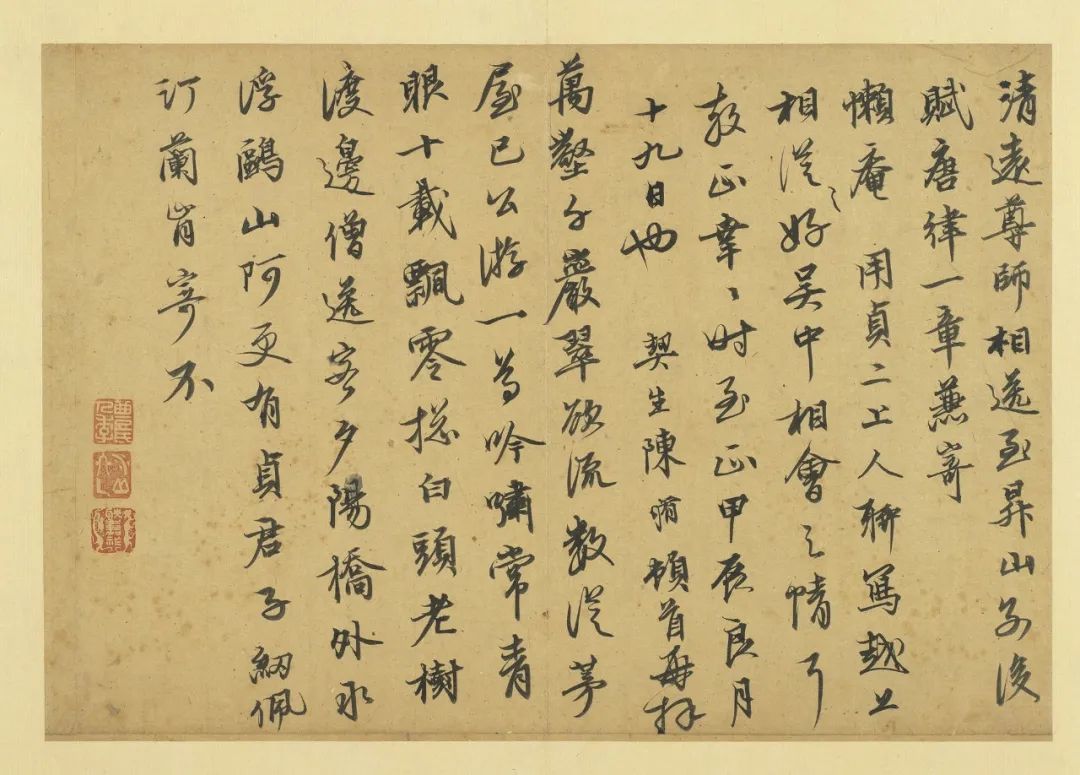 清遠尊師相送至昇山別後
賦唐律一章兼寄
懶庵 用貞二上人聊寫越上
相從之好吴中相會之情耳
教正幸幸時至正甲辰良月
十九日也 契生陳脩頓首再拜
萬壑千巖翠欲流數從茅
屋已公游一為吟嘯常青
眼十載飄零揔白頭老樹
渡邊僧送客夕陽橋外水
浮鷗山阿更有貞君子紉佩
汀蘭肯寄不